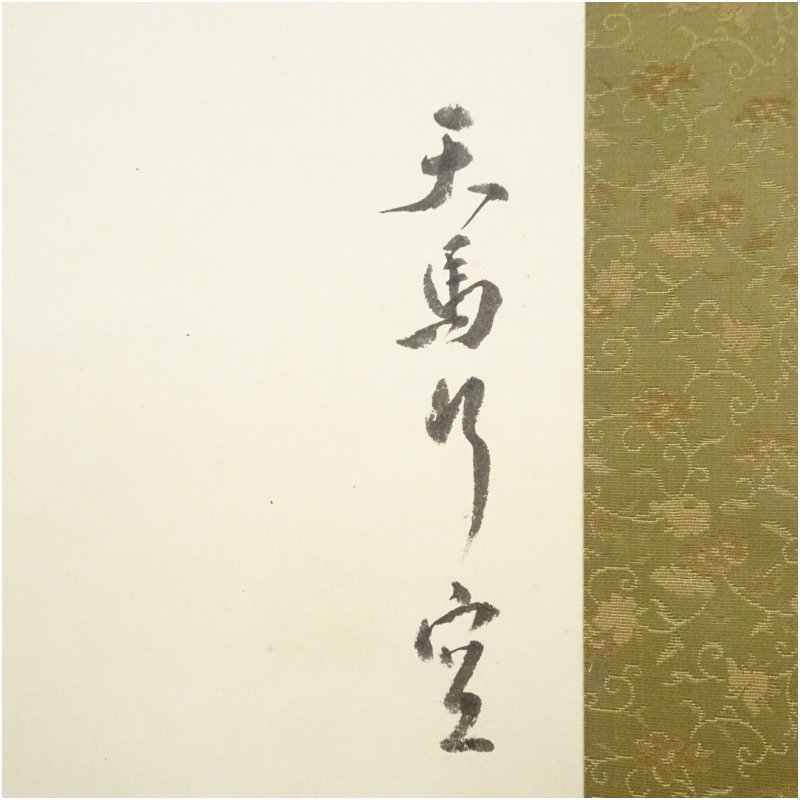 天馬行空